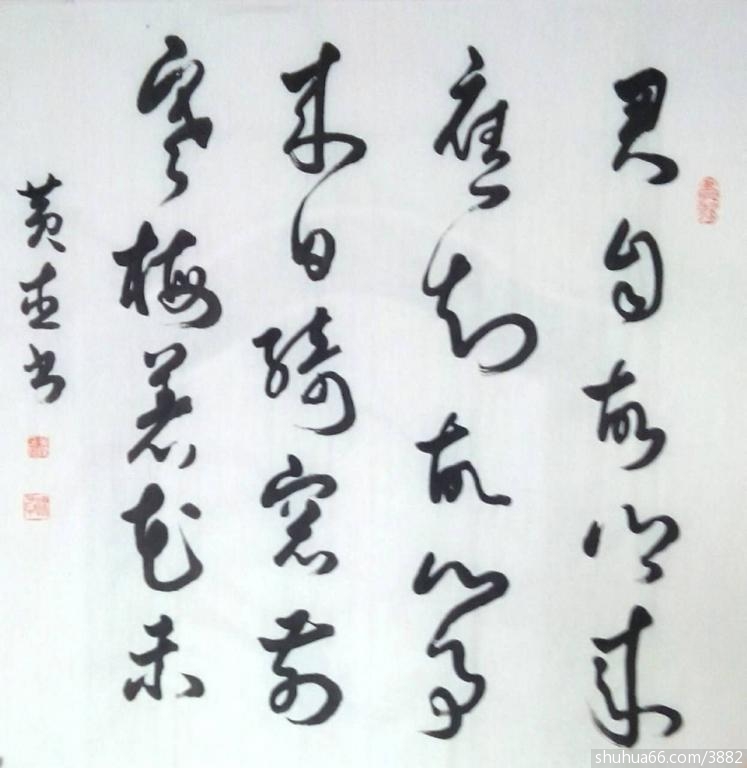 君自故鄉来
應知故鄉事
来日綺窓前
寒梅著花未
黄書
shuhua66.com/3882